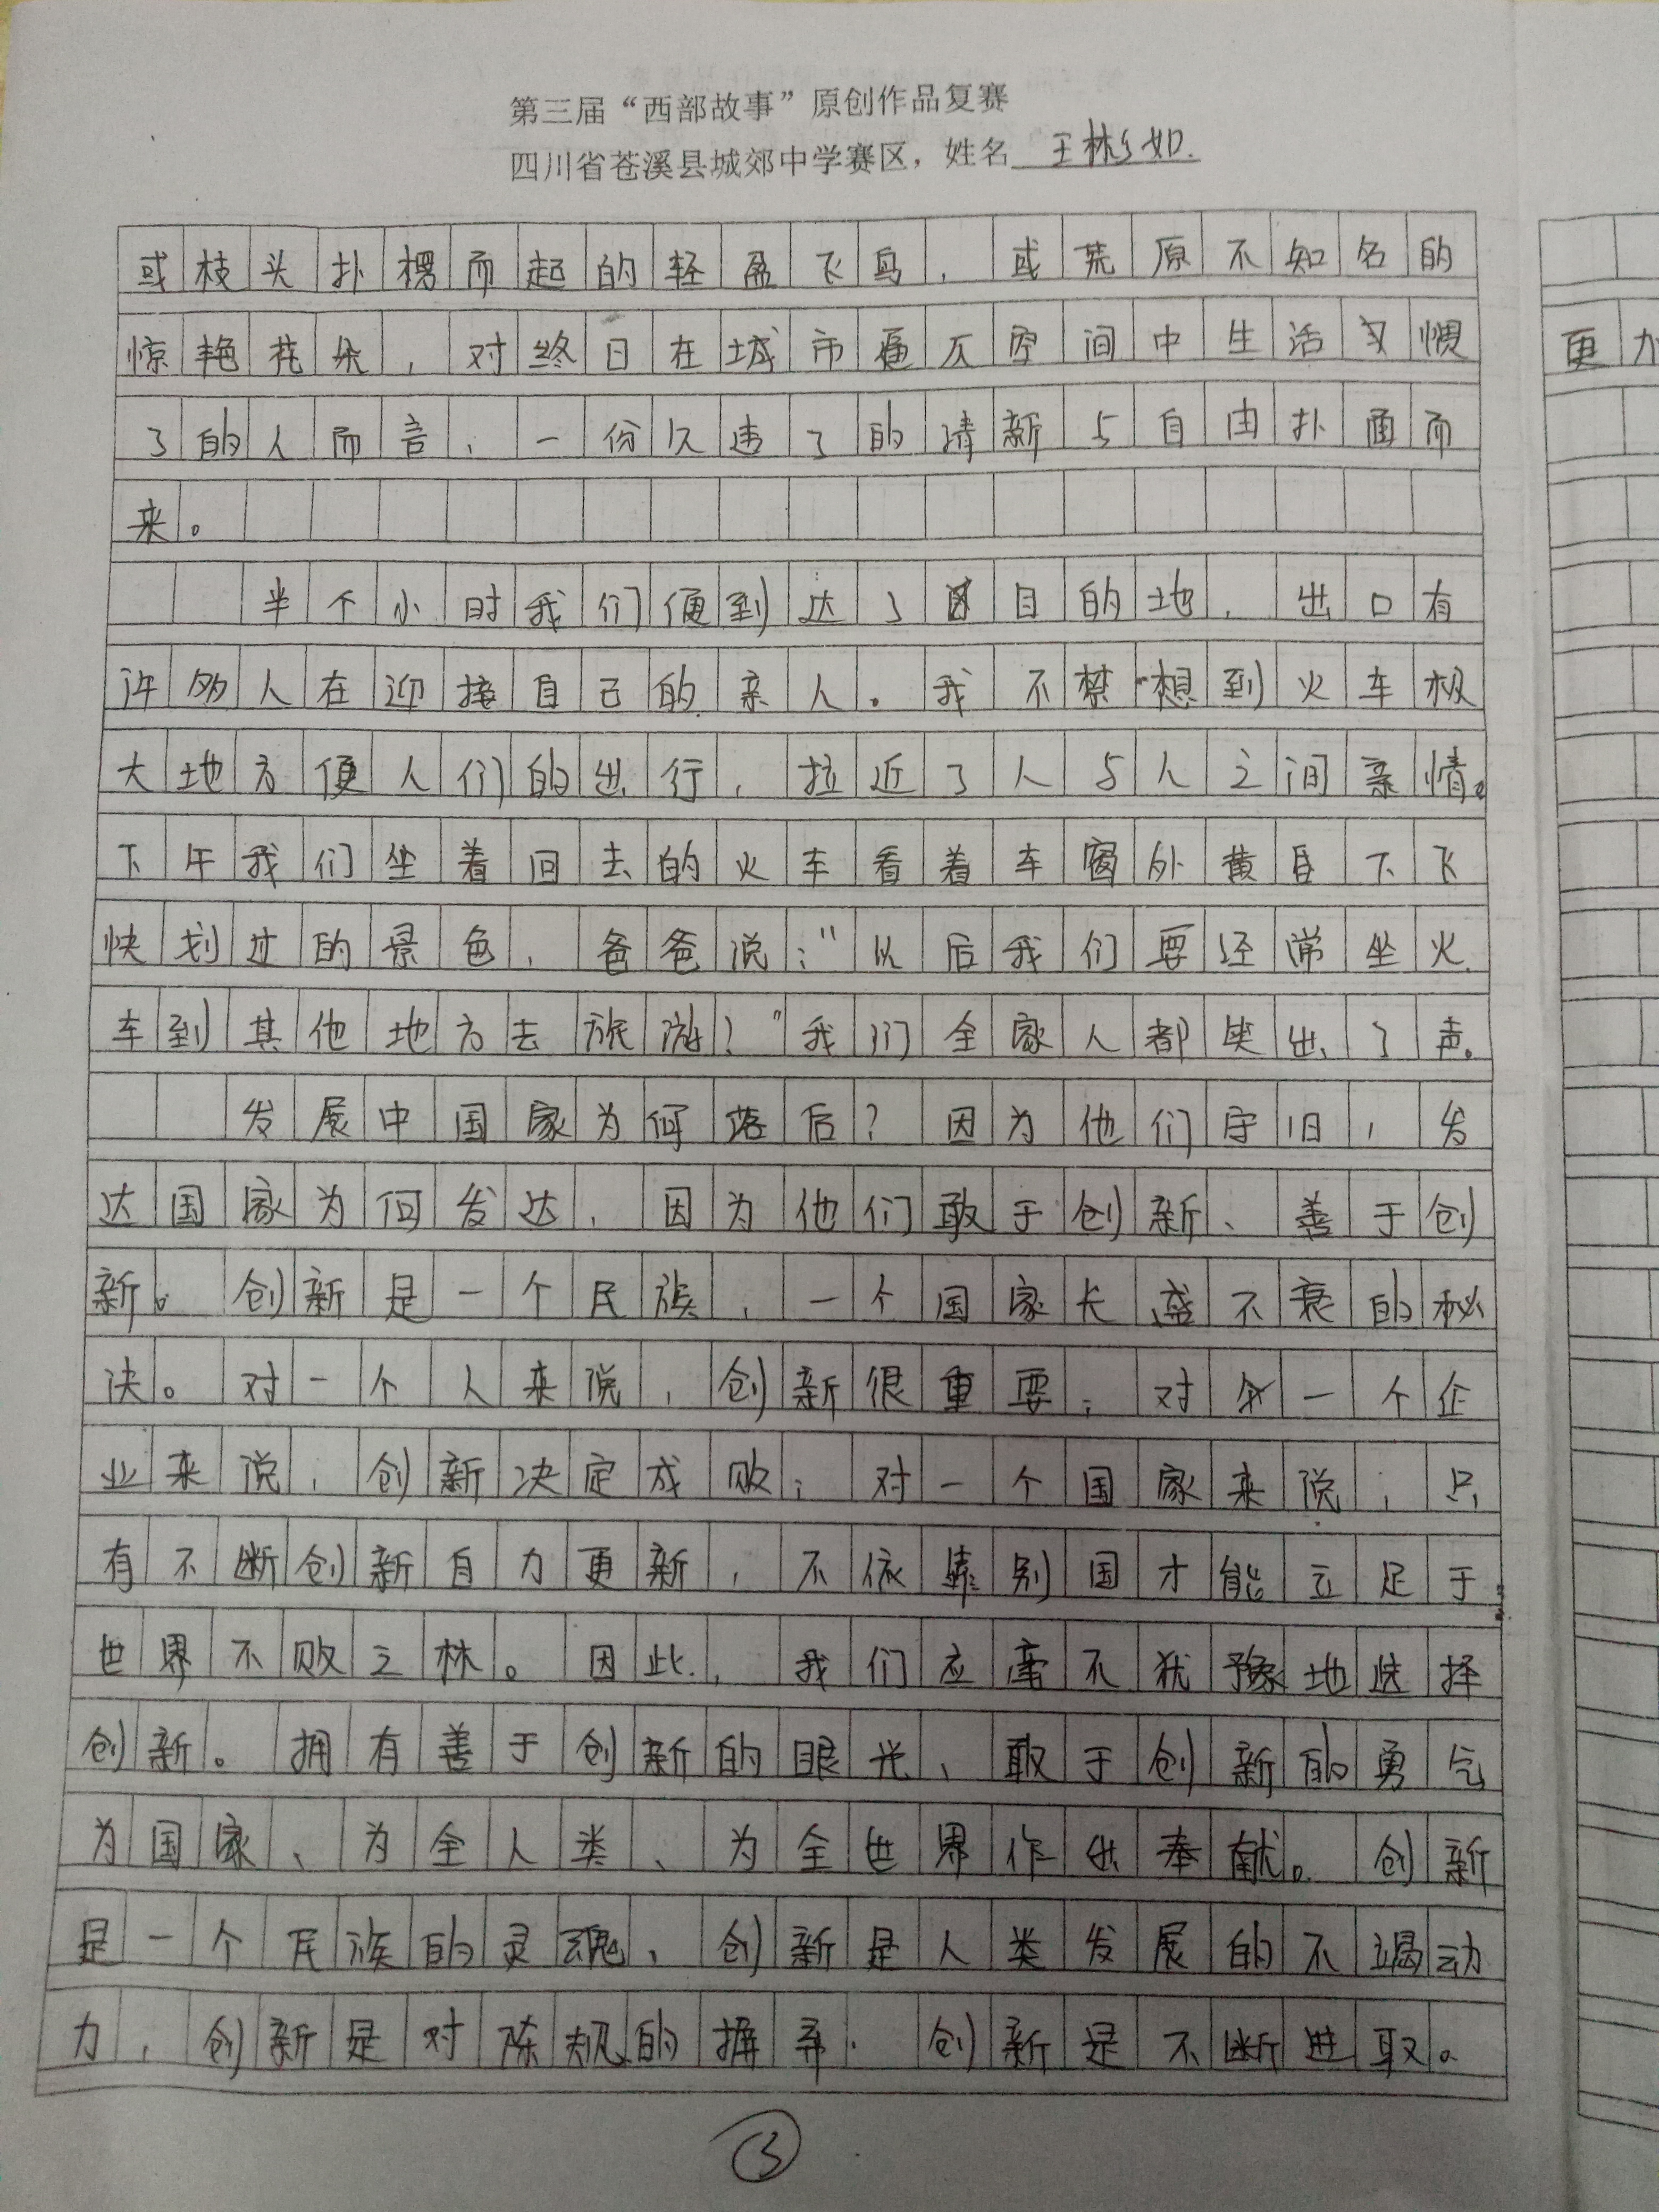 第三届“西部故事”原创作品复赛
四川省苍溪县城郊中学赛区，姓名 王彬如.
或枝头扑楞而起的轻盈飞鸟，或荒原不知名的
惊艳花朵，对终日在城市逼仄空间中生活习惯
了的人而言，一份久违了的清新与自由扑面而
来。
半个小时我们便到达了目的地，出口有
许多人在迎接自己的亲人。我不禁想到火车极
大地方便人们的出行，拉近了人与人之间亲情。
下午我们坐着回去的火车看着车窗外黄昏下飞
快划过的景色，爸爸说：“以后我们要经常坐火
车到其他地方去旅游？”我们全家人都笑出了声。
发展中国家为何落后？因为他们守旧，发
达国家为何发达，因为他们敢于创新、善于创
新。创新是一个民族，一个国家长盛不衰的秘
决。对一个人来说，创新很重要；对一个企
业来说，创新决定成败；对一个国家来说，只
有不断创新自力更新，不依靠别国才能立足于
世界不败之林。因此，我们应毫不犹豫地选择
创新。拥有善于创新的眼光、敢于创新的勇气
为国家、为全人类、为全世界作出奉献。创新
是一个民族的灵魂、创新是人类发展的不竭动
力，创新是对陈规的摒弃.创新是不断进取。
③
更加